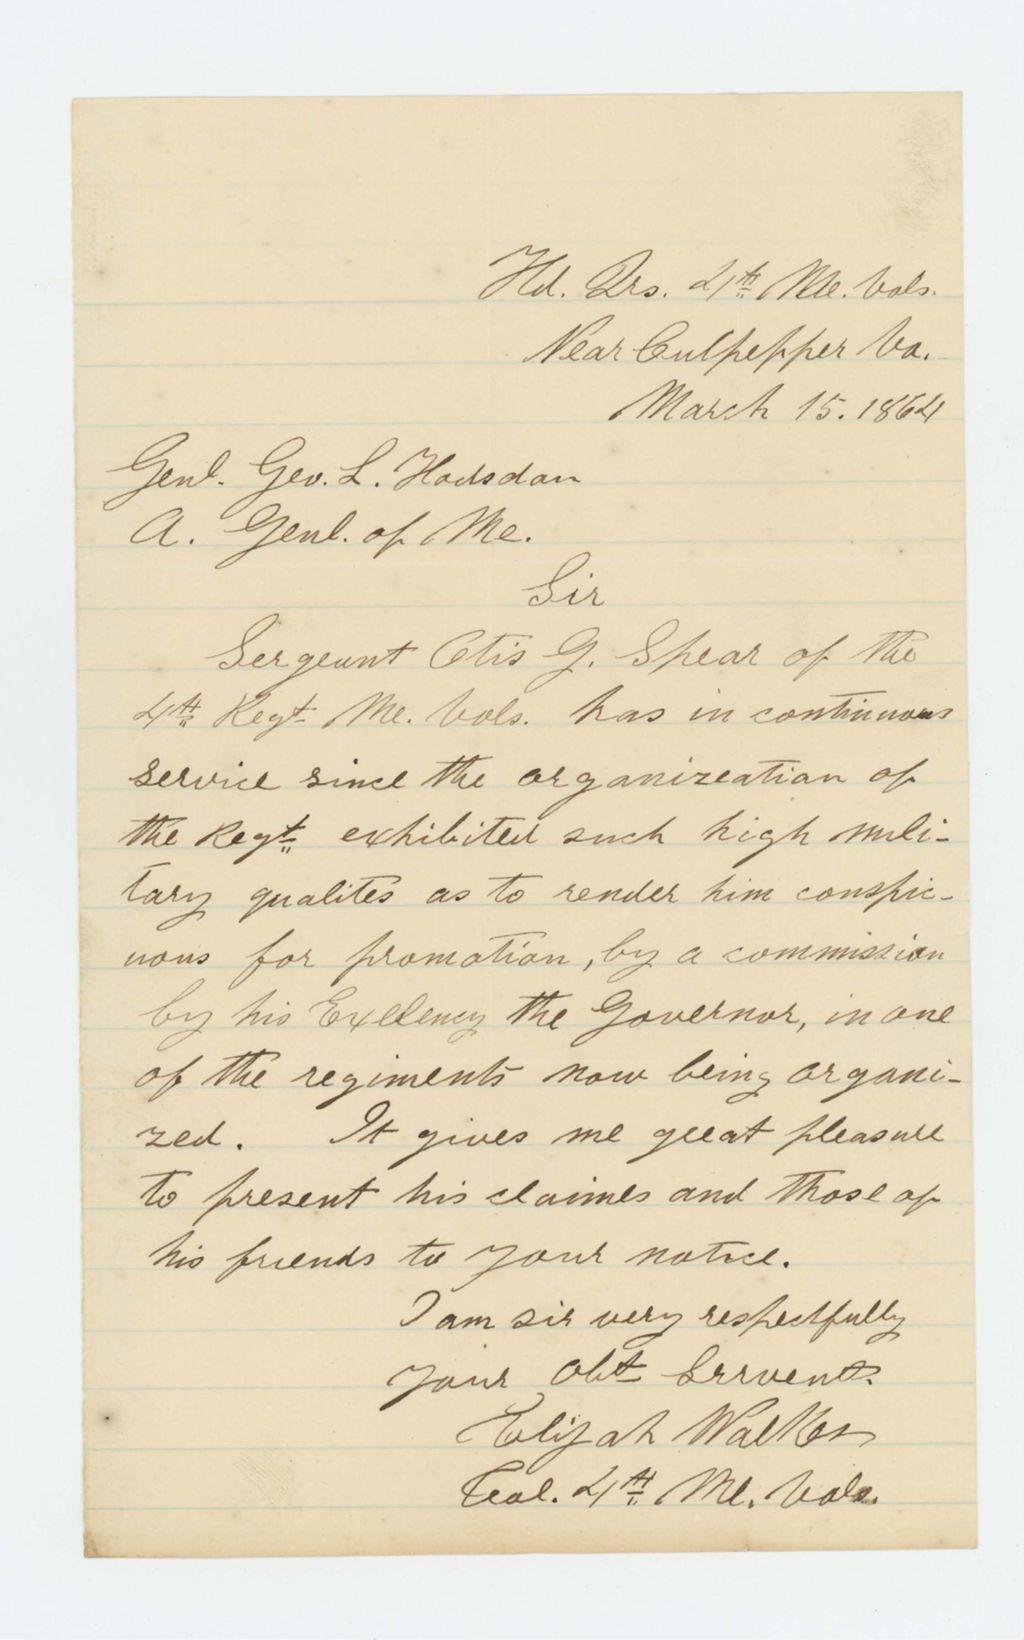 Hd. Qrs. 4th Me. Vols.
Near Culpepper Va.
March 15. 1864
Genl. Geo. L. Hodsdon
A. Genl. of Me.
Sir
Sergeant Otis G. Spear of the
4th Regt. Me. Vols. has in continuous
service since the organizeation of
the Regt. exhibited such high mili-
tary qualites as to render him conspic-
uous for promotion, by a commission
by his Exellency the Governor, in one
of the regiments now being organi-
zed. It gives me great pleasure
to present his claimes and those of
his friends to your notice.
I am sir very respectfully
your obt Servent.
Elijah Walker
Col. 4th Me. Vols.